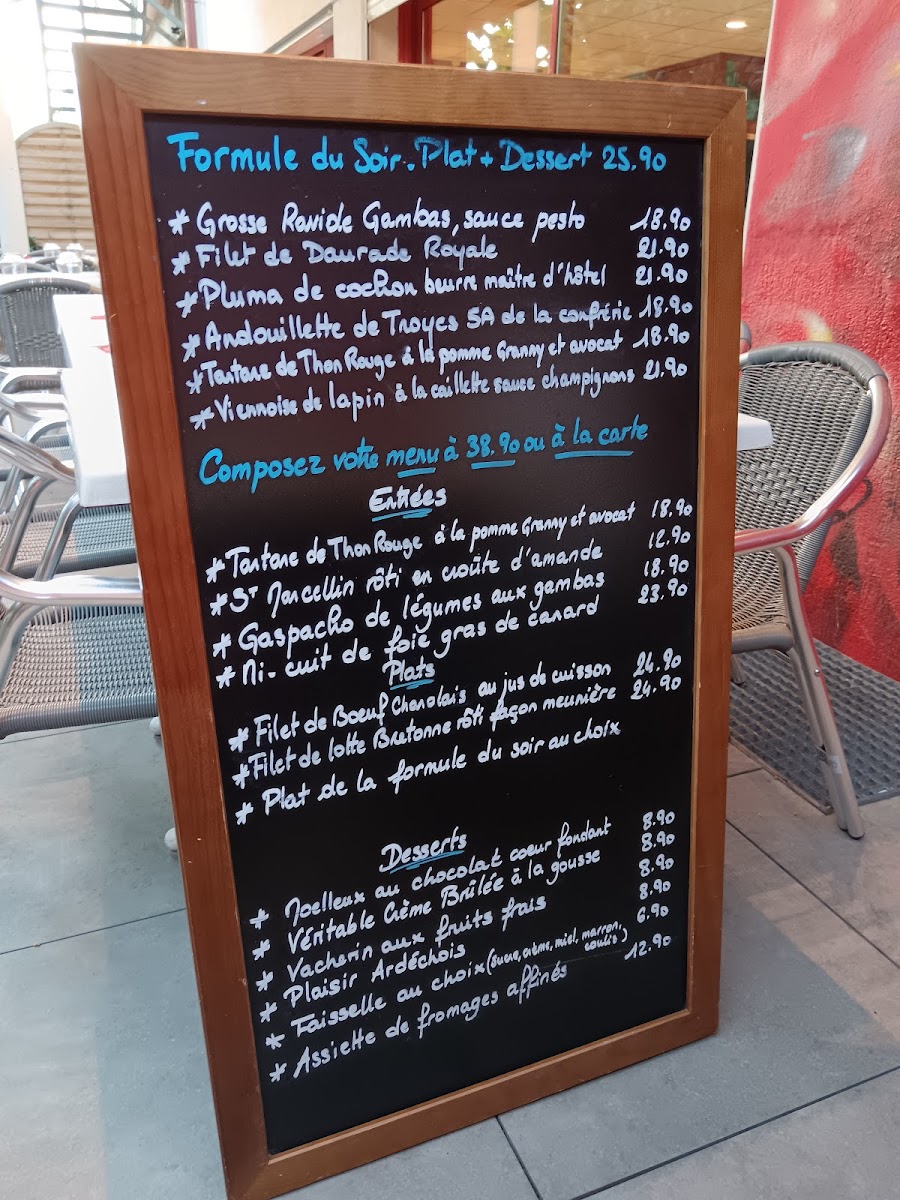 Formule du Soir. Plat + Dessert 25.90
* Grosse Ravide Gambas, sauce pesto 18.90
* Filet de Daurade Royale 21.90
* Pluma de cochon beurre maître d'hôtel 21.90
* Andouillette de Troyes 5A de la confrérie 18.90
* Tartare de Thon Rouge à la pomme Granny et avocat 18.90
* Viennoise de lapin à la caillette sauce champignons 21.90
Composez votre menu à 38.90 ou à la carte
Entrées
* Tartare de Thon Rouge à la pomme Granny et avocat 18.90
* ST Marcellin rôti en croûte d'amande 12.90
* Gaspacho de légumes aux gambas 18.90
* Mi-cuit de foie gras de canard 23.90
Plats
* Filet de Boeuf Charolais au jus de cuisson 24.90
* Filet de lotte Bretonne rôti façon meunière 24.90
* Plat de la formule du soir au choix
Desserts
* Moelleux au chocolat coeur fondant 8.90
* Véritable Crème Brûlée à la gousse 8.90
* Vacherin aux fruits frais 8.90
* Plaisir Ardéchois 8.90
* Faisselle au choix (sucre, crème, miel, marron, coulis) 6.90
* Assiette de fromages affinés 12.90